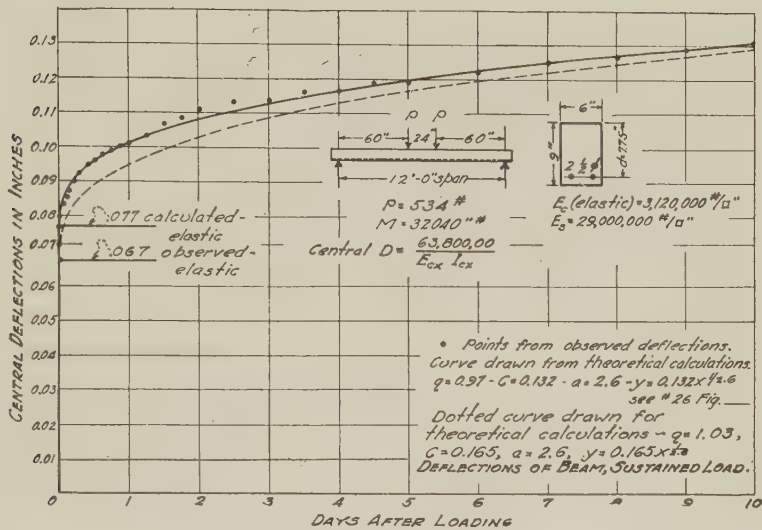 CENTRAL DEFLECTIONS IN INCHES
0.13
0.12
0.11
0.10
0.09
0.08
0.07
0.06
0.05
0.04
0.03
0.02
0.01
0
.077 calculated-
elastic
.067 observed-
elastic
P P
60" 24" 60"
12'-0" span
P = 534 #
M = 32040 "#
Central D = 63,800,00
Ecx Icx
6"
9"
d=7.75"
2 ½" ϕ
Ec (elastic) = 3,120,000 #/□"
Es = 29,000,000 #/□"
• Points from observed deflections.
Curve drawn from theoretical calculations.
q = 0.97 - C = 0.132 - a = 2.6 - y = 0.132 x 1/2.6
see # 26 Fig. __
Dotted curve drawn for
theoretical calculations - q = 1.03,
C = 0.165, a = 2.6, y = 0.165 x
DEFLECTIONS OF BEAM, SUSTAINED LOAD.
0 1 2 3 4 5 6 7 8 9 10
DAYS AFTER LOADING